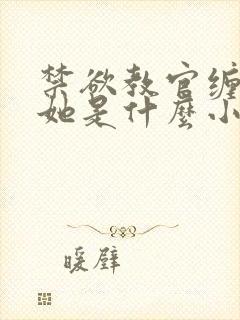 禁欲教官缠
她是什麼小
暖壁